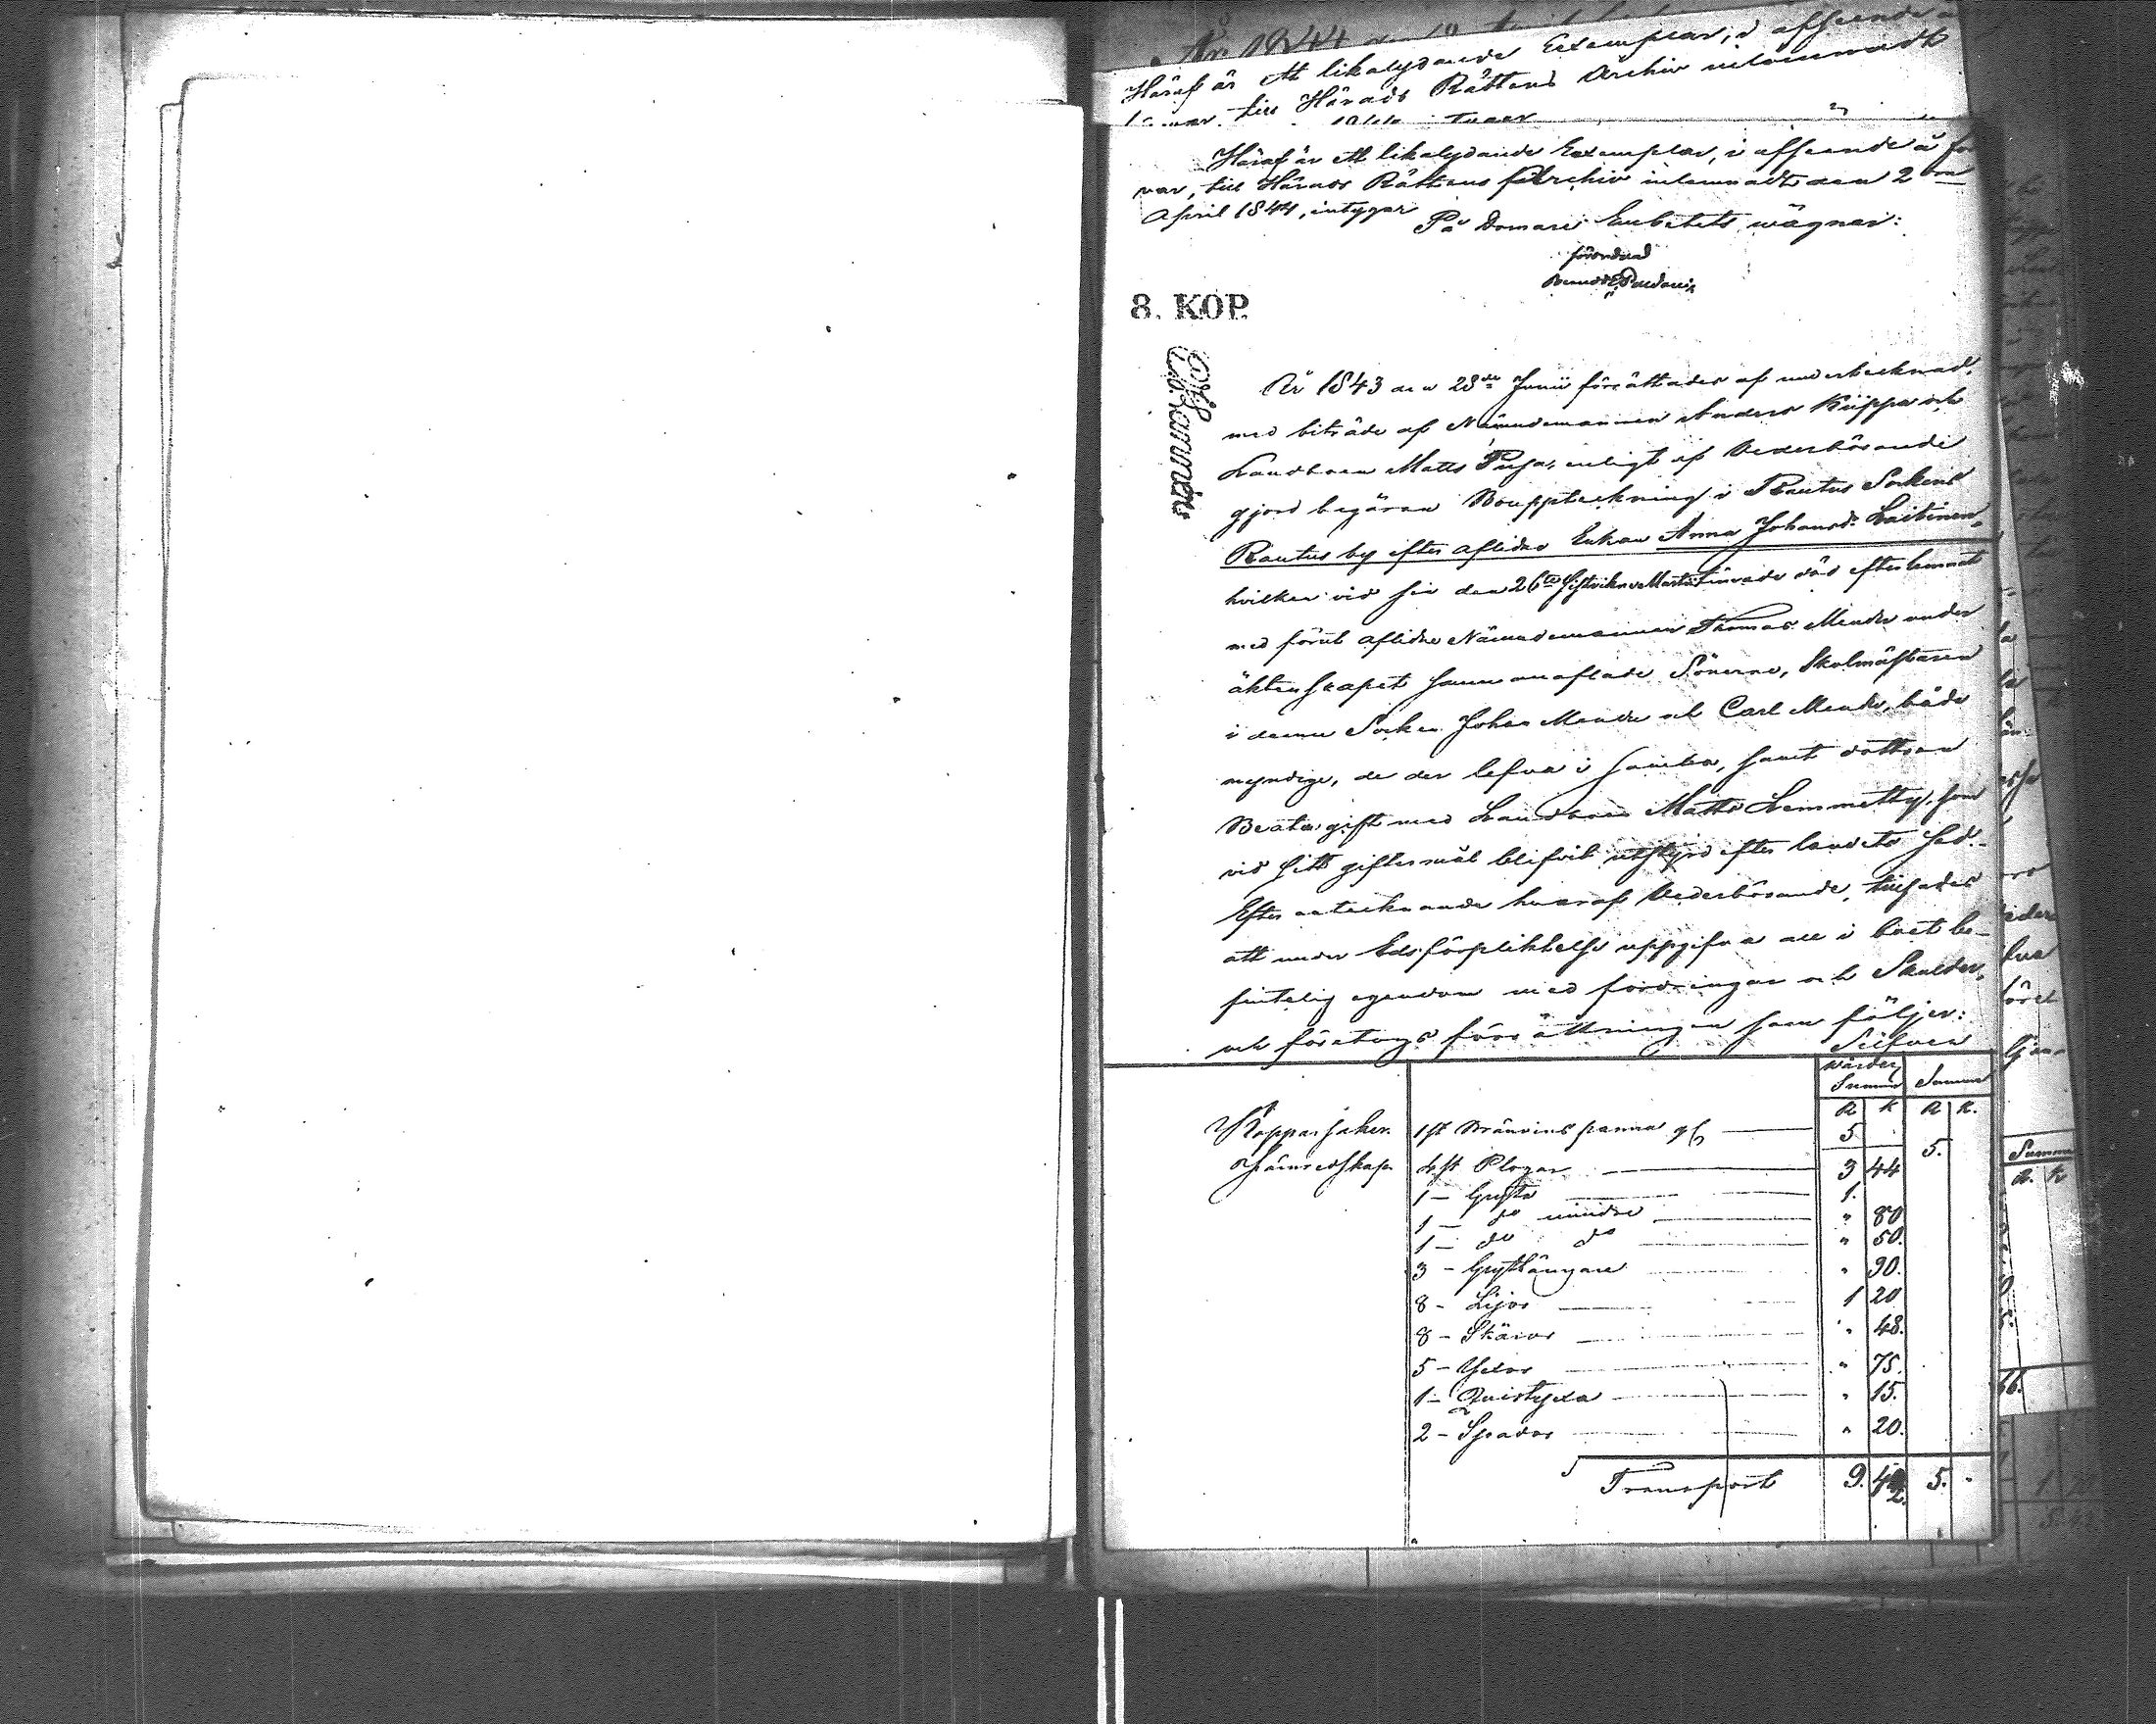 Häraf är ett likalydande Exemplar, i afseende å
till Härads Rättens Archiv inlemnadt
Häraf är ett likalydande Exemplar, i afseende å för
var, till Härads Rättens Archiv inlemnadt den 2
April 1844, intygar
På Domare Embetets wägnar:
förordnad
8. KOP.
År 1843 den 28de Junii förrättades af undertecknad,
med biträde af Nämndemannen Anders Kiippa och
Landboen Matts Pusa, enligt af Vederbörande
gjord begäran Bouppteckning i Rautus Sockens
Rautus by efter aflidne Enkan Anna Johansd: Laitinen,
hvilken vid sin den 26te sistvikne Martii timade död efterlemnat
med förut aflidne Nämndemannen Thomas Mende under
äktenskapet sammanaflade Sönerne, Skolmästaren
i denne Socken Johan Mende och Carl Mende, både
myndige, de der lefva i sambo, samt dottren
Beata gift med Landboen Matts Lemmetty, som
vid sitt giftermål blifvit utstyrd efter landets sed.
Efter antecknande hvaraf Vederbörande, tillsades
att under Edsförpliktelse uppgifva all i boet be-
fintelig egendom med fordringar och Skulder,
och företogs förrättningen som följer:
Silfver
Värder Summa
R K R K.
Kopparsaker. 1 st Brännvins panna 5 5.
Järnredskap 4 st Plogar 3 44
1 - Gryta 1.
1 - do mindre " 80
1 - do do " 50.
3 - Grythängare " 30.
8 - Lijor 1 20
8 - Skäror " 48.
5 - Yxor " 75.
1 - Quistyxa " 15.
2 - Spador " 20.
Transport 9. 42. 5. -
Summa
R. K
66.